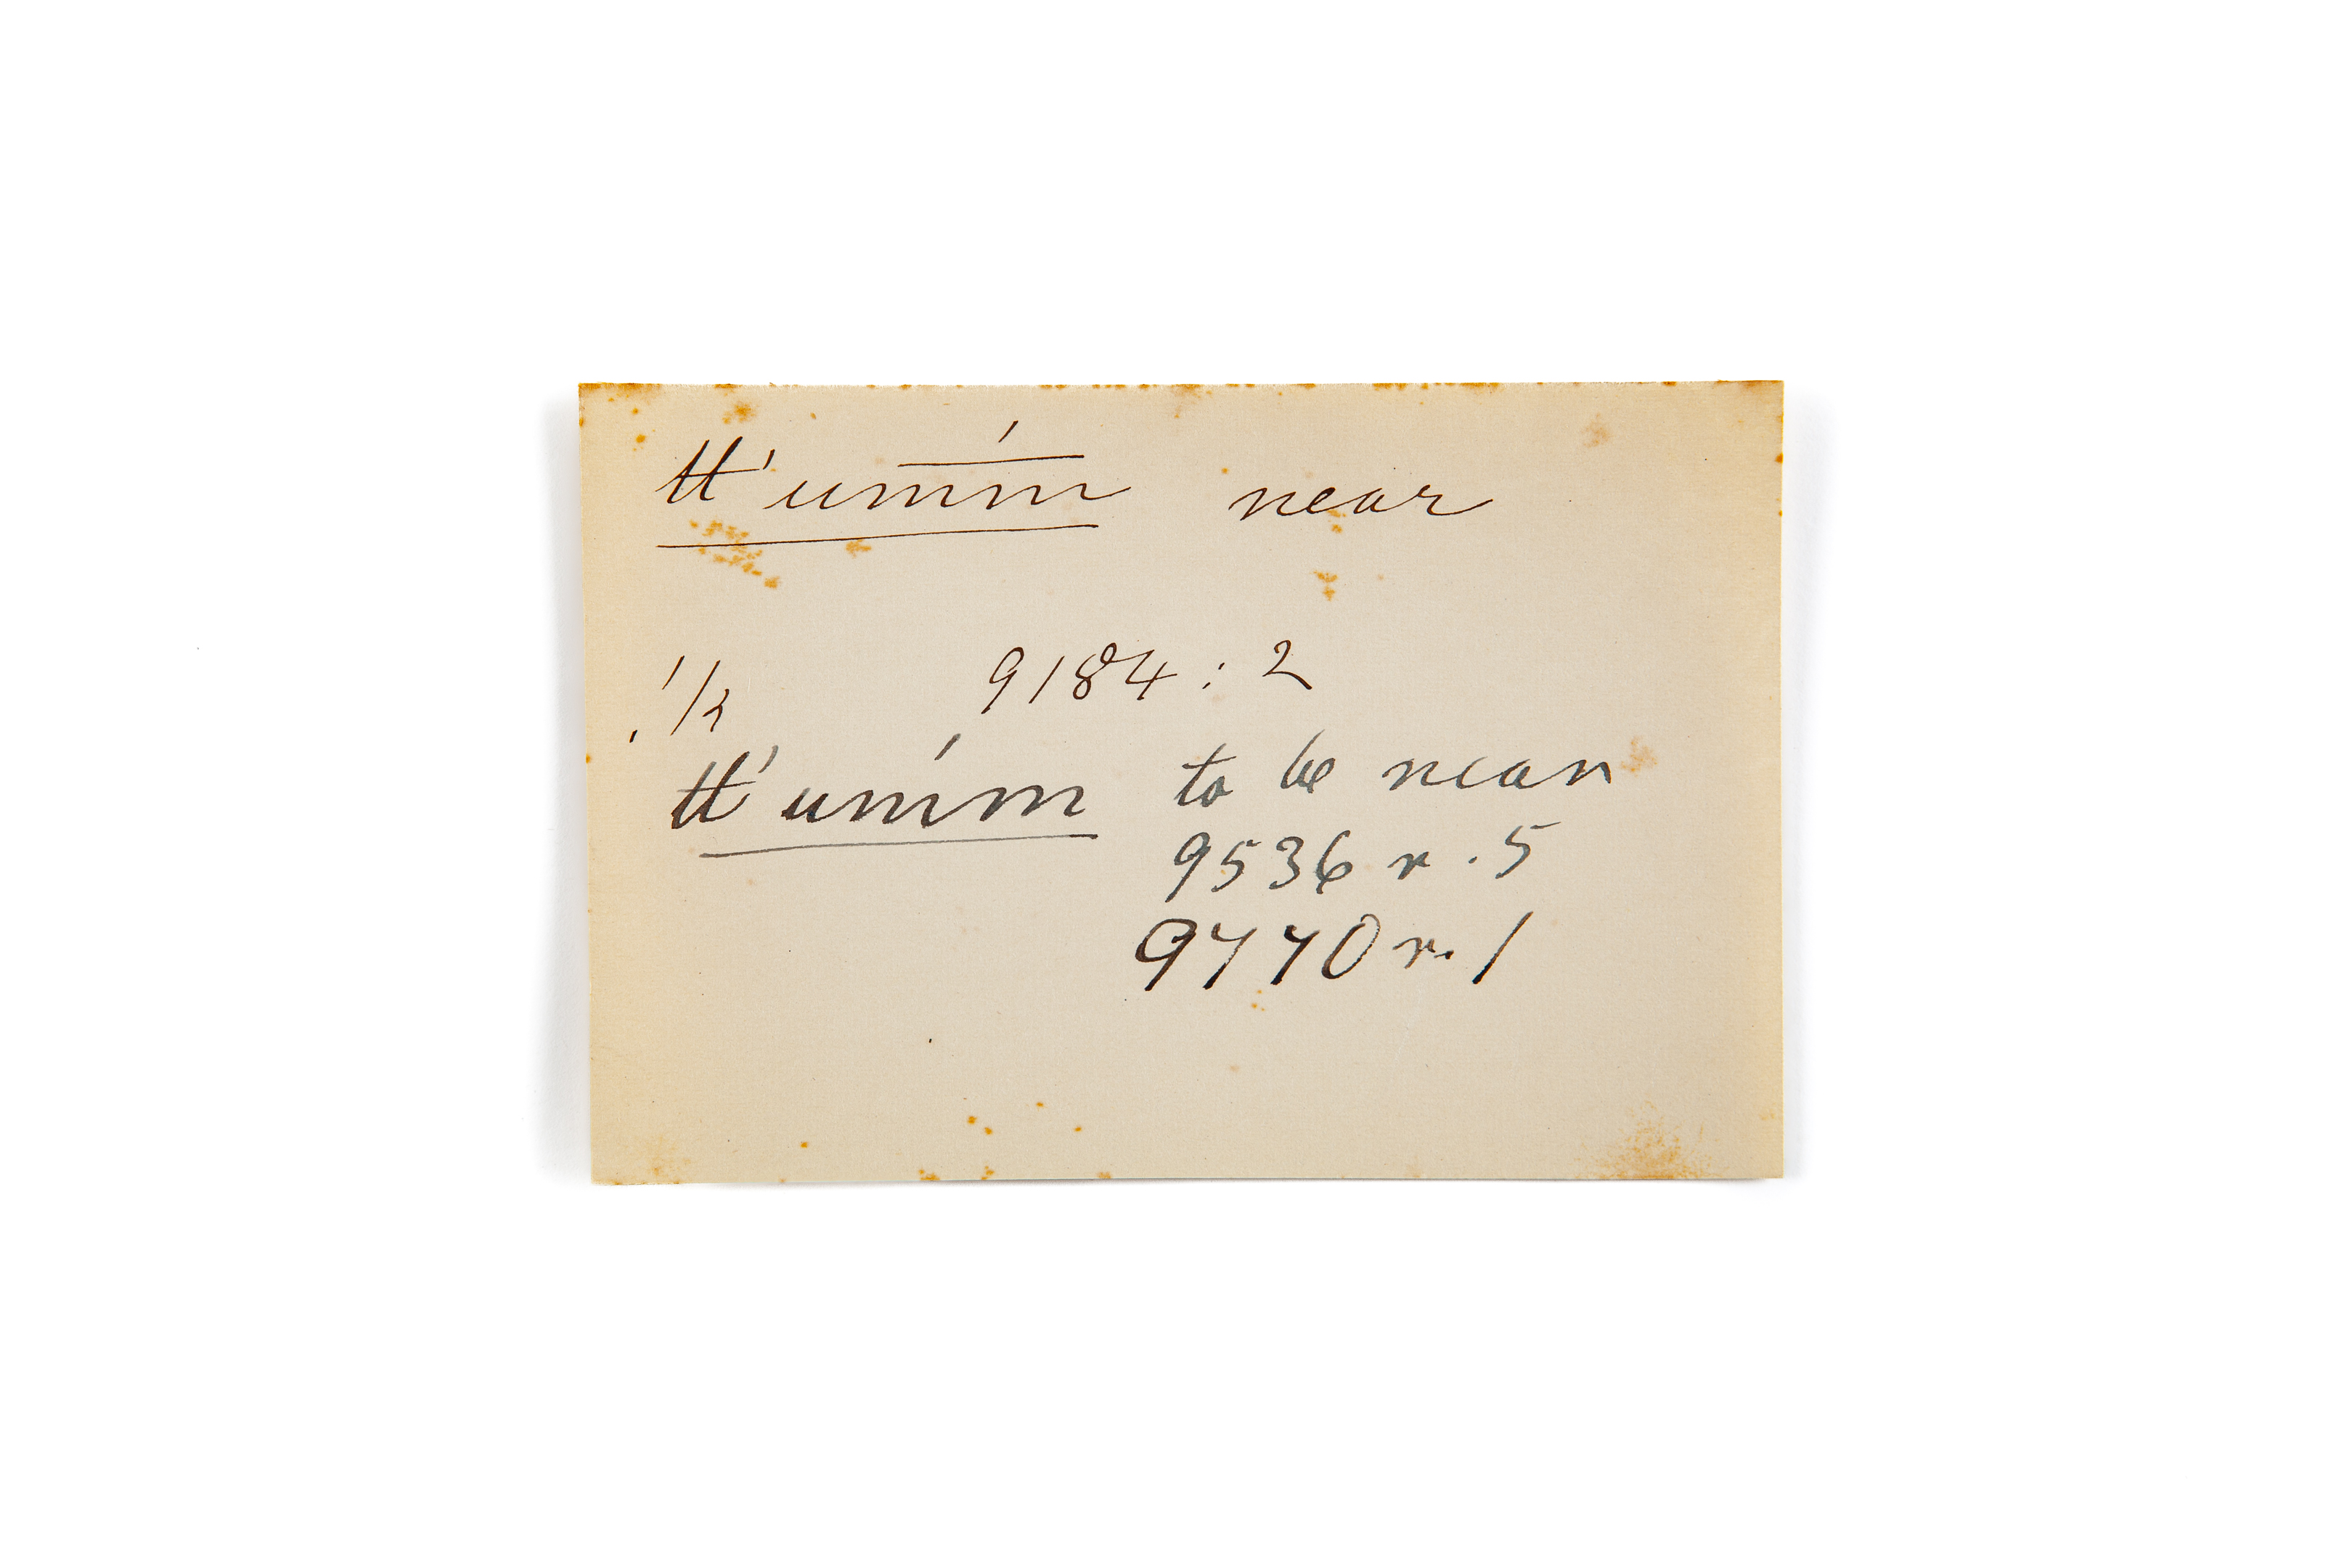 tt'um'm near
9184 : 2
tt'um'm to be near
9536 r. 5
9770 r. 1